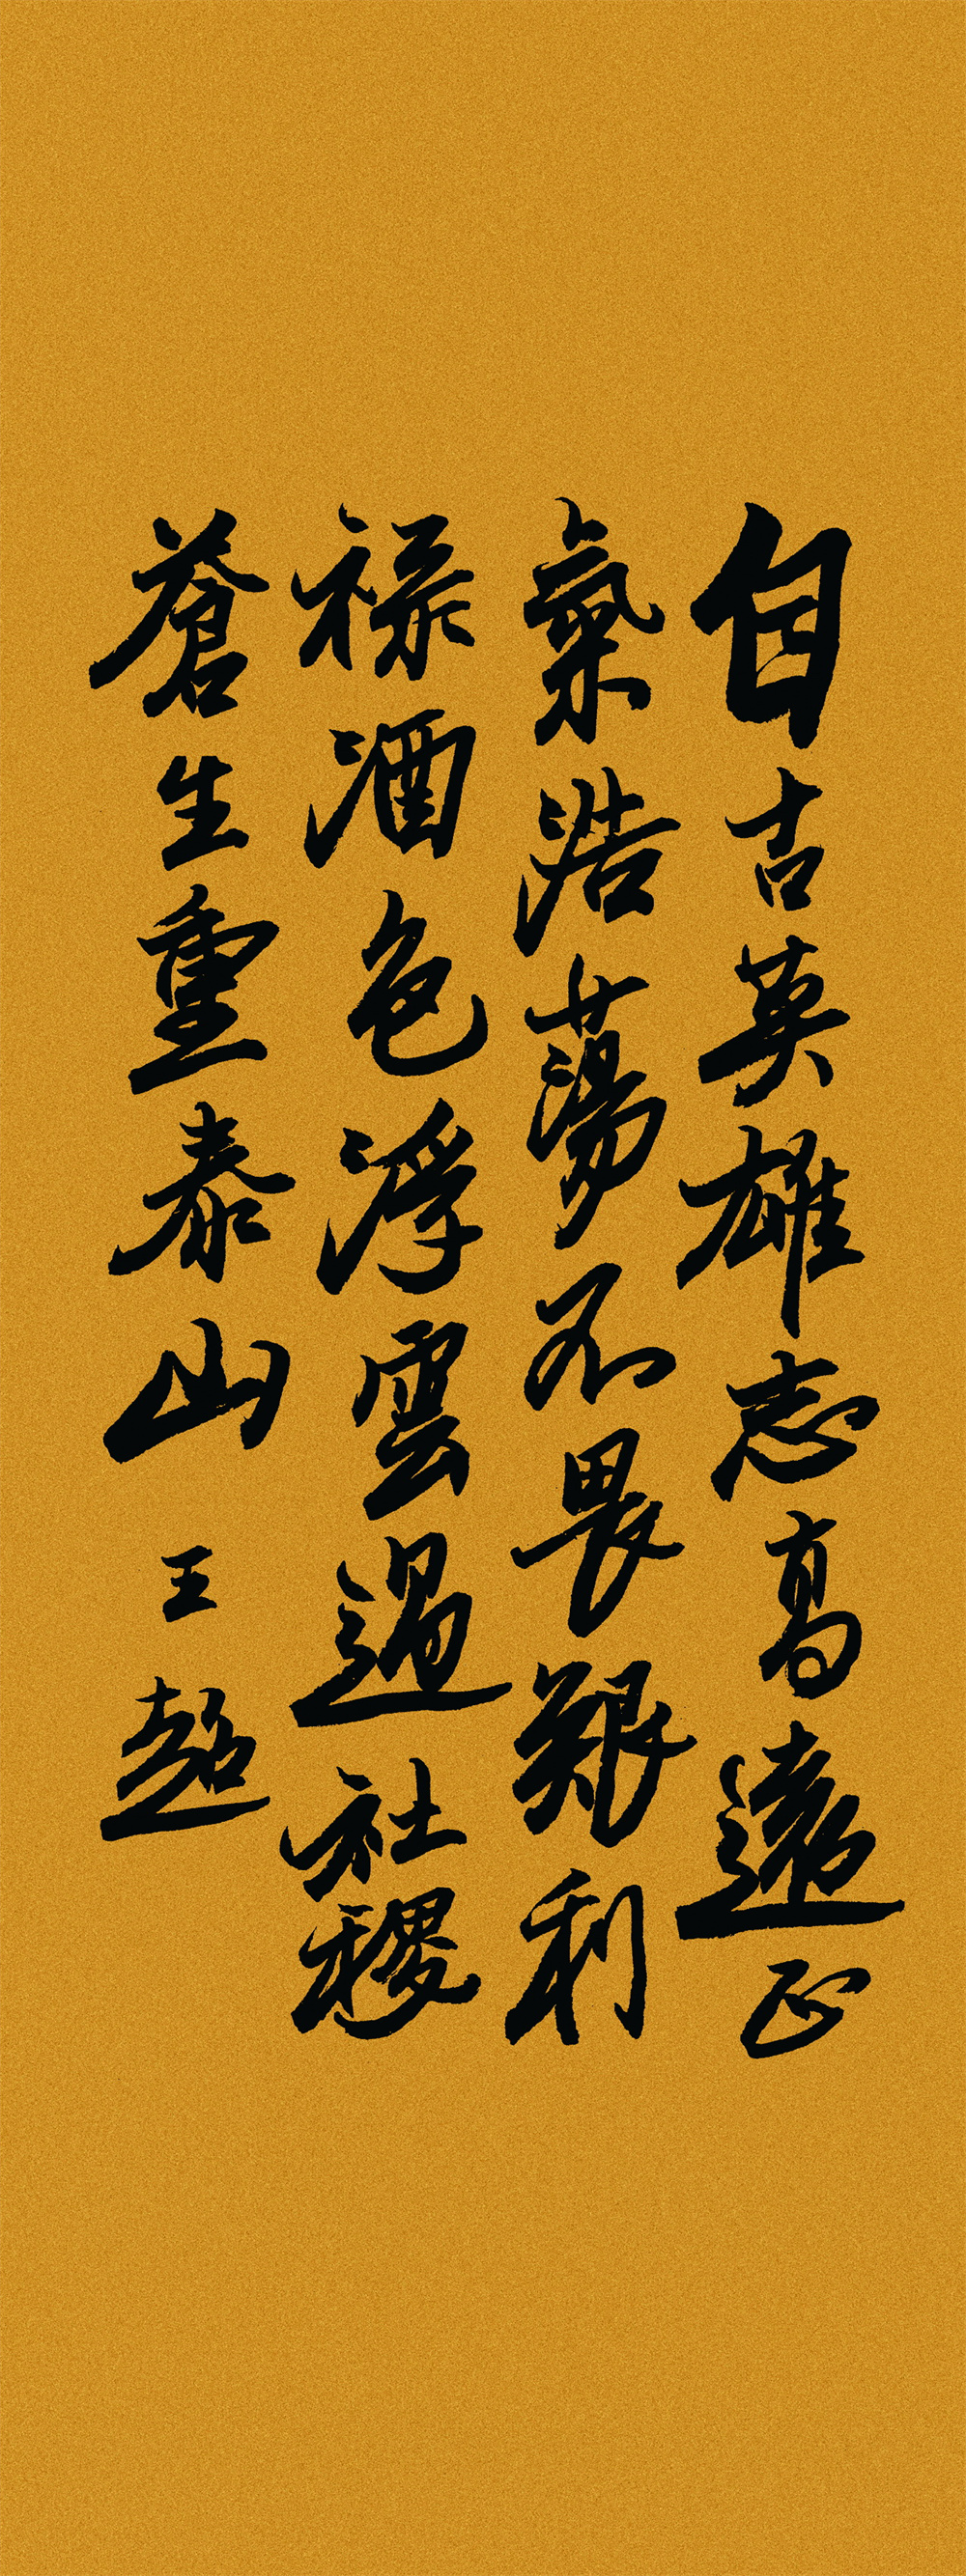 自古英雄志高遠正
氣浩蕩不畏艱利
祿酒色浮雲過社稷
蒼生重泰山
王超